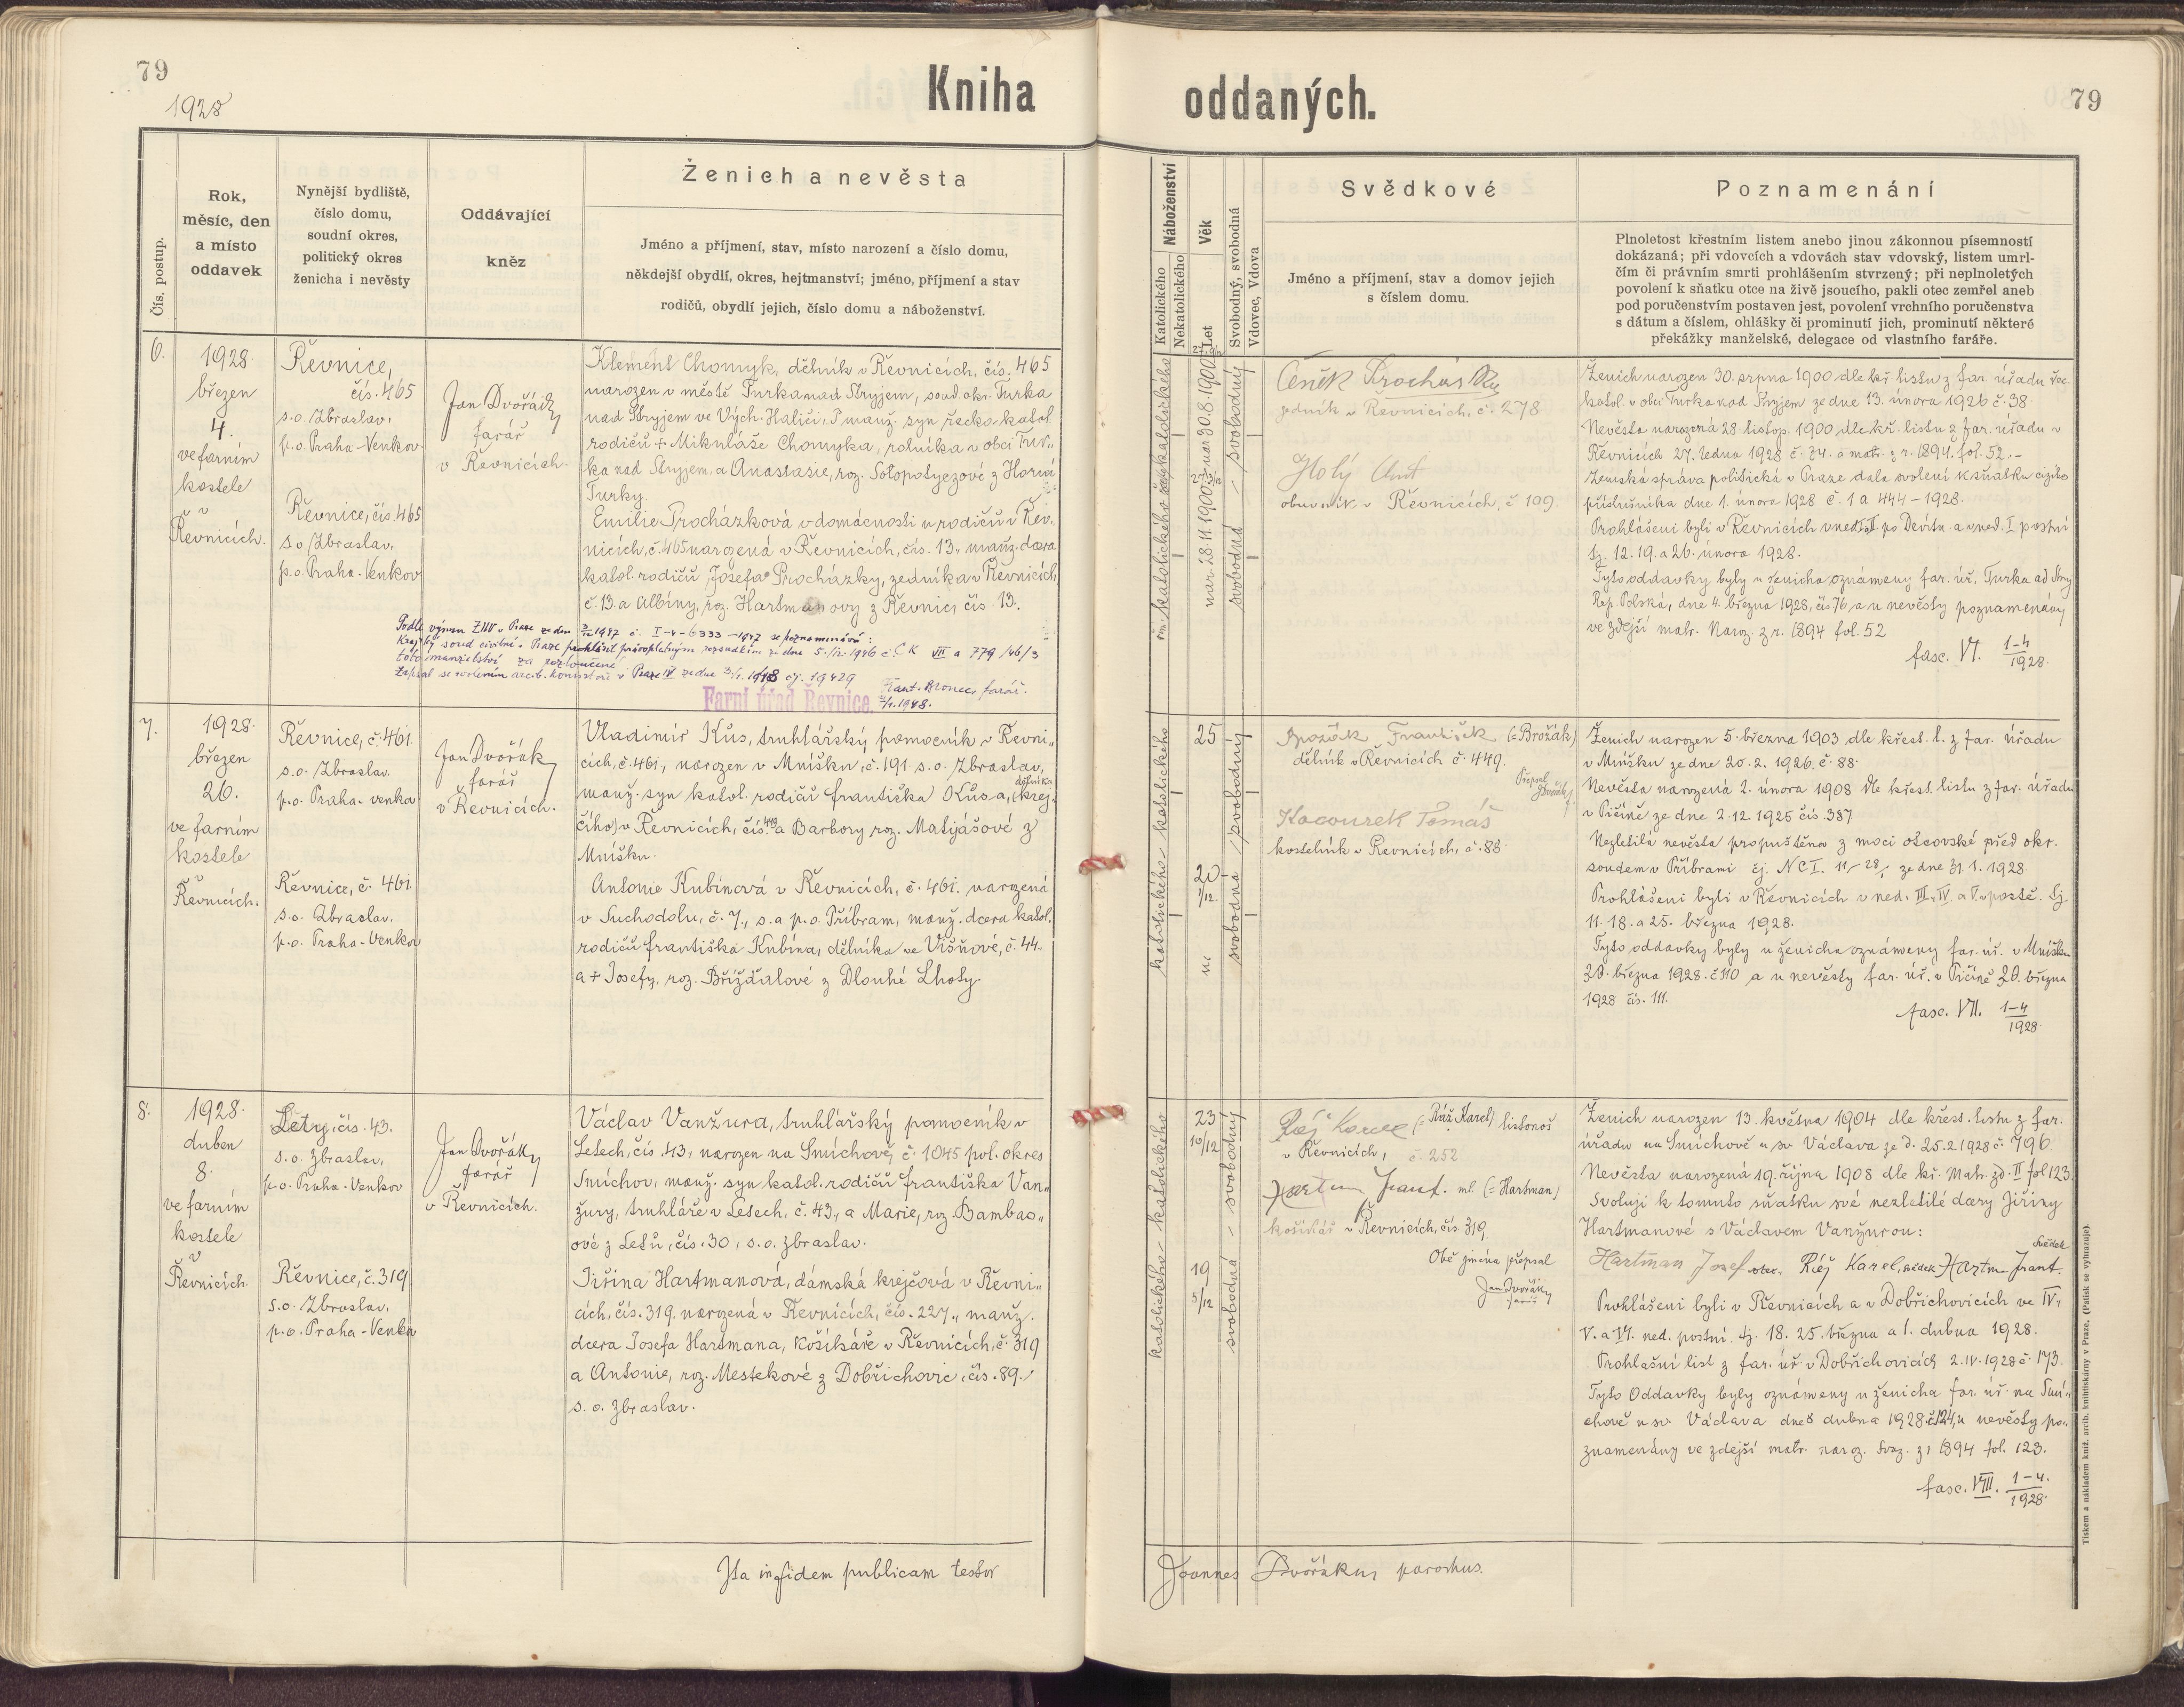 79
1928
Kniha
oddaných.
79
Čís. postup.
Rok,
měsíc, den
a místo
oddavek
Nynější bydliště,
číslo domu,
soudní okres,
politický okres
ženicha i nevěsty
Oddávající
kněz
Ženich a nevěsta
Jméno a příjmení, stav, místo narození a číslo domu,
někdejší obydlí, okres, hejtmanství; jméno, příjmení a stav
rodičů, obydlí jejich, číslo domu a náboženství.
Náboženství
Katolického
Nekatolického
Věk
Let
Svobodný, svobodná
Vdovec, Vdova
Svědkové
Jméno a příjmení, stav a domov jejich
s číslem domu.
Poznamenání
Plnoletost křestním listem anebo jinou zákonnou písemností
dokázaná; při vdovcích a vdovách stav vdovský, listem umrl-
čím či právním smrti prohlášením stvrzený; při neplnoletých
povolení k sňatku otce na živě jsoucího, pakli otec zemřel aneb
pod poručenstvím postaven jest, povolení vrchního poručenstva
s dátum a číslem, ohlášky či prominutí jich, prominutí některé
překážky manželské, delegace od vlastního faráře.
6.
1928.
březen
4.
ve farním
kostele
v
Řevnicích.
Řevnice,
čís. 465
s.o. Zbraslav,
p.o. Praha-Venkov.
Řevnice, čís. 465
s.o. Zbraslav,
p.o. Praha-Venkov
Jan Dvořák
farář
v Řevnicích.
Klement Chomyk, dělník v Řevnicích, čís. 465
narozen v městě Turka nad Stryjem, soud. okr. Turka
nad Stryjem ve Vých. Haliči, manž. syn řecko katol.
rodičů + Mikuláše Chomyka, rolníka v obci Tur-
ka nad Stryjem, a Anastasie, roz. z Horní
Turky.
Emilie Procházková v domácnosti u rodičů v Řev-
nicích, č. 465 narozená v Řevnicích, čís. 13, manž. dcera
katol. rodičů Josefa Procházky, zedníka v Řevnicích
č. 13. a Albíny, roz. Hartmanovy z Řevnic čís. 13.
Podle výnosu ZNV v Praze ze dne 1947 č. I-4-6333-1947 se poznamenává:
Krajský soud civilní v Praze prohlásil právoplatným rozsudkem ze dne 5./12. 1946 č. Č K VII a 779/46/3
toto manželství za rozloučené.
Zapsal se svolením arcib. konsistoře v Praze IV ze dne 3./1. 1948 čj. 19429
Frant. farář.
1948.
Farní úřad Řevnice.
katolického
nar. 30.8.1900
svobodný
nar. 28.11.1900
svobodná
Čeněk
v Řevnicích, č. 278
Holý Ant
obuvník v Řevnicích, č 109
Ženich narozen 30. srpna 1900 dle kř. listu z far. úřadu řec.
katol. v obci Turka nad Stryjem ze dne 13. února 1926 č. 38.
Nevěsta narozená 28. listop. 1900 dle kř. listu z far. úřadu v
Řevnicích 27. ledna 1928 č. 34. a matr. z r. 1894. fol. 52.-
Zemská správa politická v Praze dala svolení k sňatku cizího
příslušníka dne 1. února 1928 č. 1 a 444-1928.
Prohlášeni byli v Řevnicích v ned. I. II. po Devítn. a v ned. I postní
tj. 12. 19. a 26. února 1928.
Tyto oddavky byly u ženicha oznámeny far. úř. Turka
Rep. Polská, dne 4. března 1928, čís 76 a u nevěsty poznamenány
ve zdejší matr. Naroz. z r. 1894 fol. 52
fasc. VI. 1-4
1928.
7.
1928.
březen
26.
ve farním
kostele
v
Řevnicích.
Řevnice, č. 461.
s.o. Zbraslav.
p.o. Praha-venkov
Řevnice, č. 461
s.o. Zbraslav.
p.o. Praha-Venkov
Jan Dvořák
farář
v Řevnicích.
Vladimír Kůs, truhlářský pomocník v Řevni-
cích, č. 461, narozen v Mníšku, č. 191 s.o. Zbraslav,
manž. syn katol. rodičů Františka Kůsa, dělníka (krej-
čího) v Řevnicích, čís. 449 a Barbory roz. Matyjášové z
Mníšku.
Antonie Kubínová v Řevnicích, č. 461. narozená
v Suchodolu, č. 7., s. a p. o. Příbram, manž. dcera katol.
rodičů Františka Kubína, dělníka ve Višňové, č. 44.
a + Josefy, roz. Břížďalové z Dlouhé Lhoty.
katolického - katolického
25
20
1/12.
svobodný
svobodná
Brožák František (=Brožák)
dělník v Řevnicích č. 449.
Přepsal
JDvořák
Kocourek Tomáš
kostelník v Řevnicích, č. 88
Ženich narozen 5. března 1903 dle křest. l. z far. úřadu
v Mníšku ze dne 20. 2. 1926. č. 88.
Nevěsta narozená 2. února 1908 dle křest. listu z far. úřadu
v Pičíně ze dne 2. 12. 1925 čís. 387
Nezletilá nevěsta propuštěna z moci otcovské před okr.
soudem v Příbrami čj. N C I. 11/28 ze dne 31. 1. 1928
Prohlášeni byli v Řevnicích v ned. III. IV. a V. v postě. tj.
11. 18. a 25. března 1928.
Tyto oddavky byly u ženicha oznámeny far. úř. v Mníšku
26. března 1928. č 110 a u nevěsty far. úř. v Pičíně 26. března
1928 čís. 111.
fasc. VII. 1-4
1928.
8.
1928.
duben
8.
ve farním
kostele
v
Řevnicích.
Lety, čís. 43.
s.o. Zbraslav,
p.o. Praha-Venkov
Řevnice, č. 319
s.o. Zbraslav.
p.o. Praha-Venkov
Jan Dvořák
farář
v Řevnicích.
Václav Vanžura, truhlářský pomocník v
Letech, čís. 43, narozen na Smíchově, č. 1045 pol. okres
Smíchov, manž. syn katol. rodičů Františka Van-
žury, truhláře v Letech, č. 43, a Marie, roz. Bambas-
ové z Letů, čís. 30, s.o. Zbraslav.
Jiřina Hartmanová, dámská krejčová v Řevni-
cích, čís. 319. narozená v Řevnicích, čís. 227., manž.
dcera Josefa Hartmana, košíkáře v Řevnicích, č. 319
a Antonie, roz. Mestekové z Dobřichovic, čís. 89.
s. o. Zbraslav.
katolického - katolického
23
10/12
19
5/12
svobodný
svobodná
Karel (= Ráž Karel) listonoš
v Řevnicích, č. 252
Hartm Frant. ml. (= Hartman)
košíkář v Řevnicích, čís. 319.
Obě jména přepsal
Jan Dvořák
farář
Ženich narozen 13. května 1904 dle křest. listu z far.
úřadu na Smíchově u sv. Václava ze d. 25. 2 1928 č. 796.
Nevěsta narozená 19. října 1908 dle kř. Matr. zd. II fol 123.
Svoluji k tomuto sňatku své nezletilé dcery Jiřiny
Hartmanové s Václavem Vanžurou:
Hartman Josef otec. Karel, svědek Hartm Frant. svědek
Prohlášeni byli v Řevnicích a v Dobřichovicích ve IV.
V. a VI. ned. postní. tj. 18. 25. března a 1. dubna 1928.
Prohlašní list z far. úř. v Dobřichovicích 2. IV. 1928 č. 173.
Tyto Oddavky byly oznámeny u ženicha far. úř. na Smí-
chově u sv. Václava dne 8 dubna 1928 č. 124, u nevěsty po-
znamenány ve zdejší matr. naroz. svaz. z r 1894 fol. 123.
fasc. VIII. 1-4.
1928.
Ita in fidem publicam testor
Joannes Dvořákus parochus.
Tiskem a nákladem kníž. arcib. knihtiskárny v Praze. (Patisk se vyhrazuje).